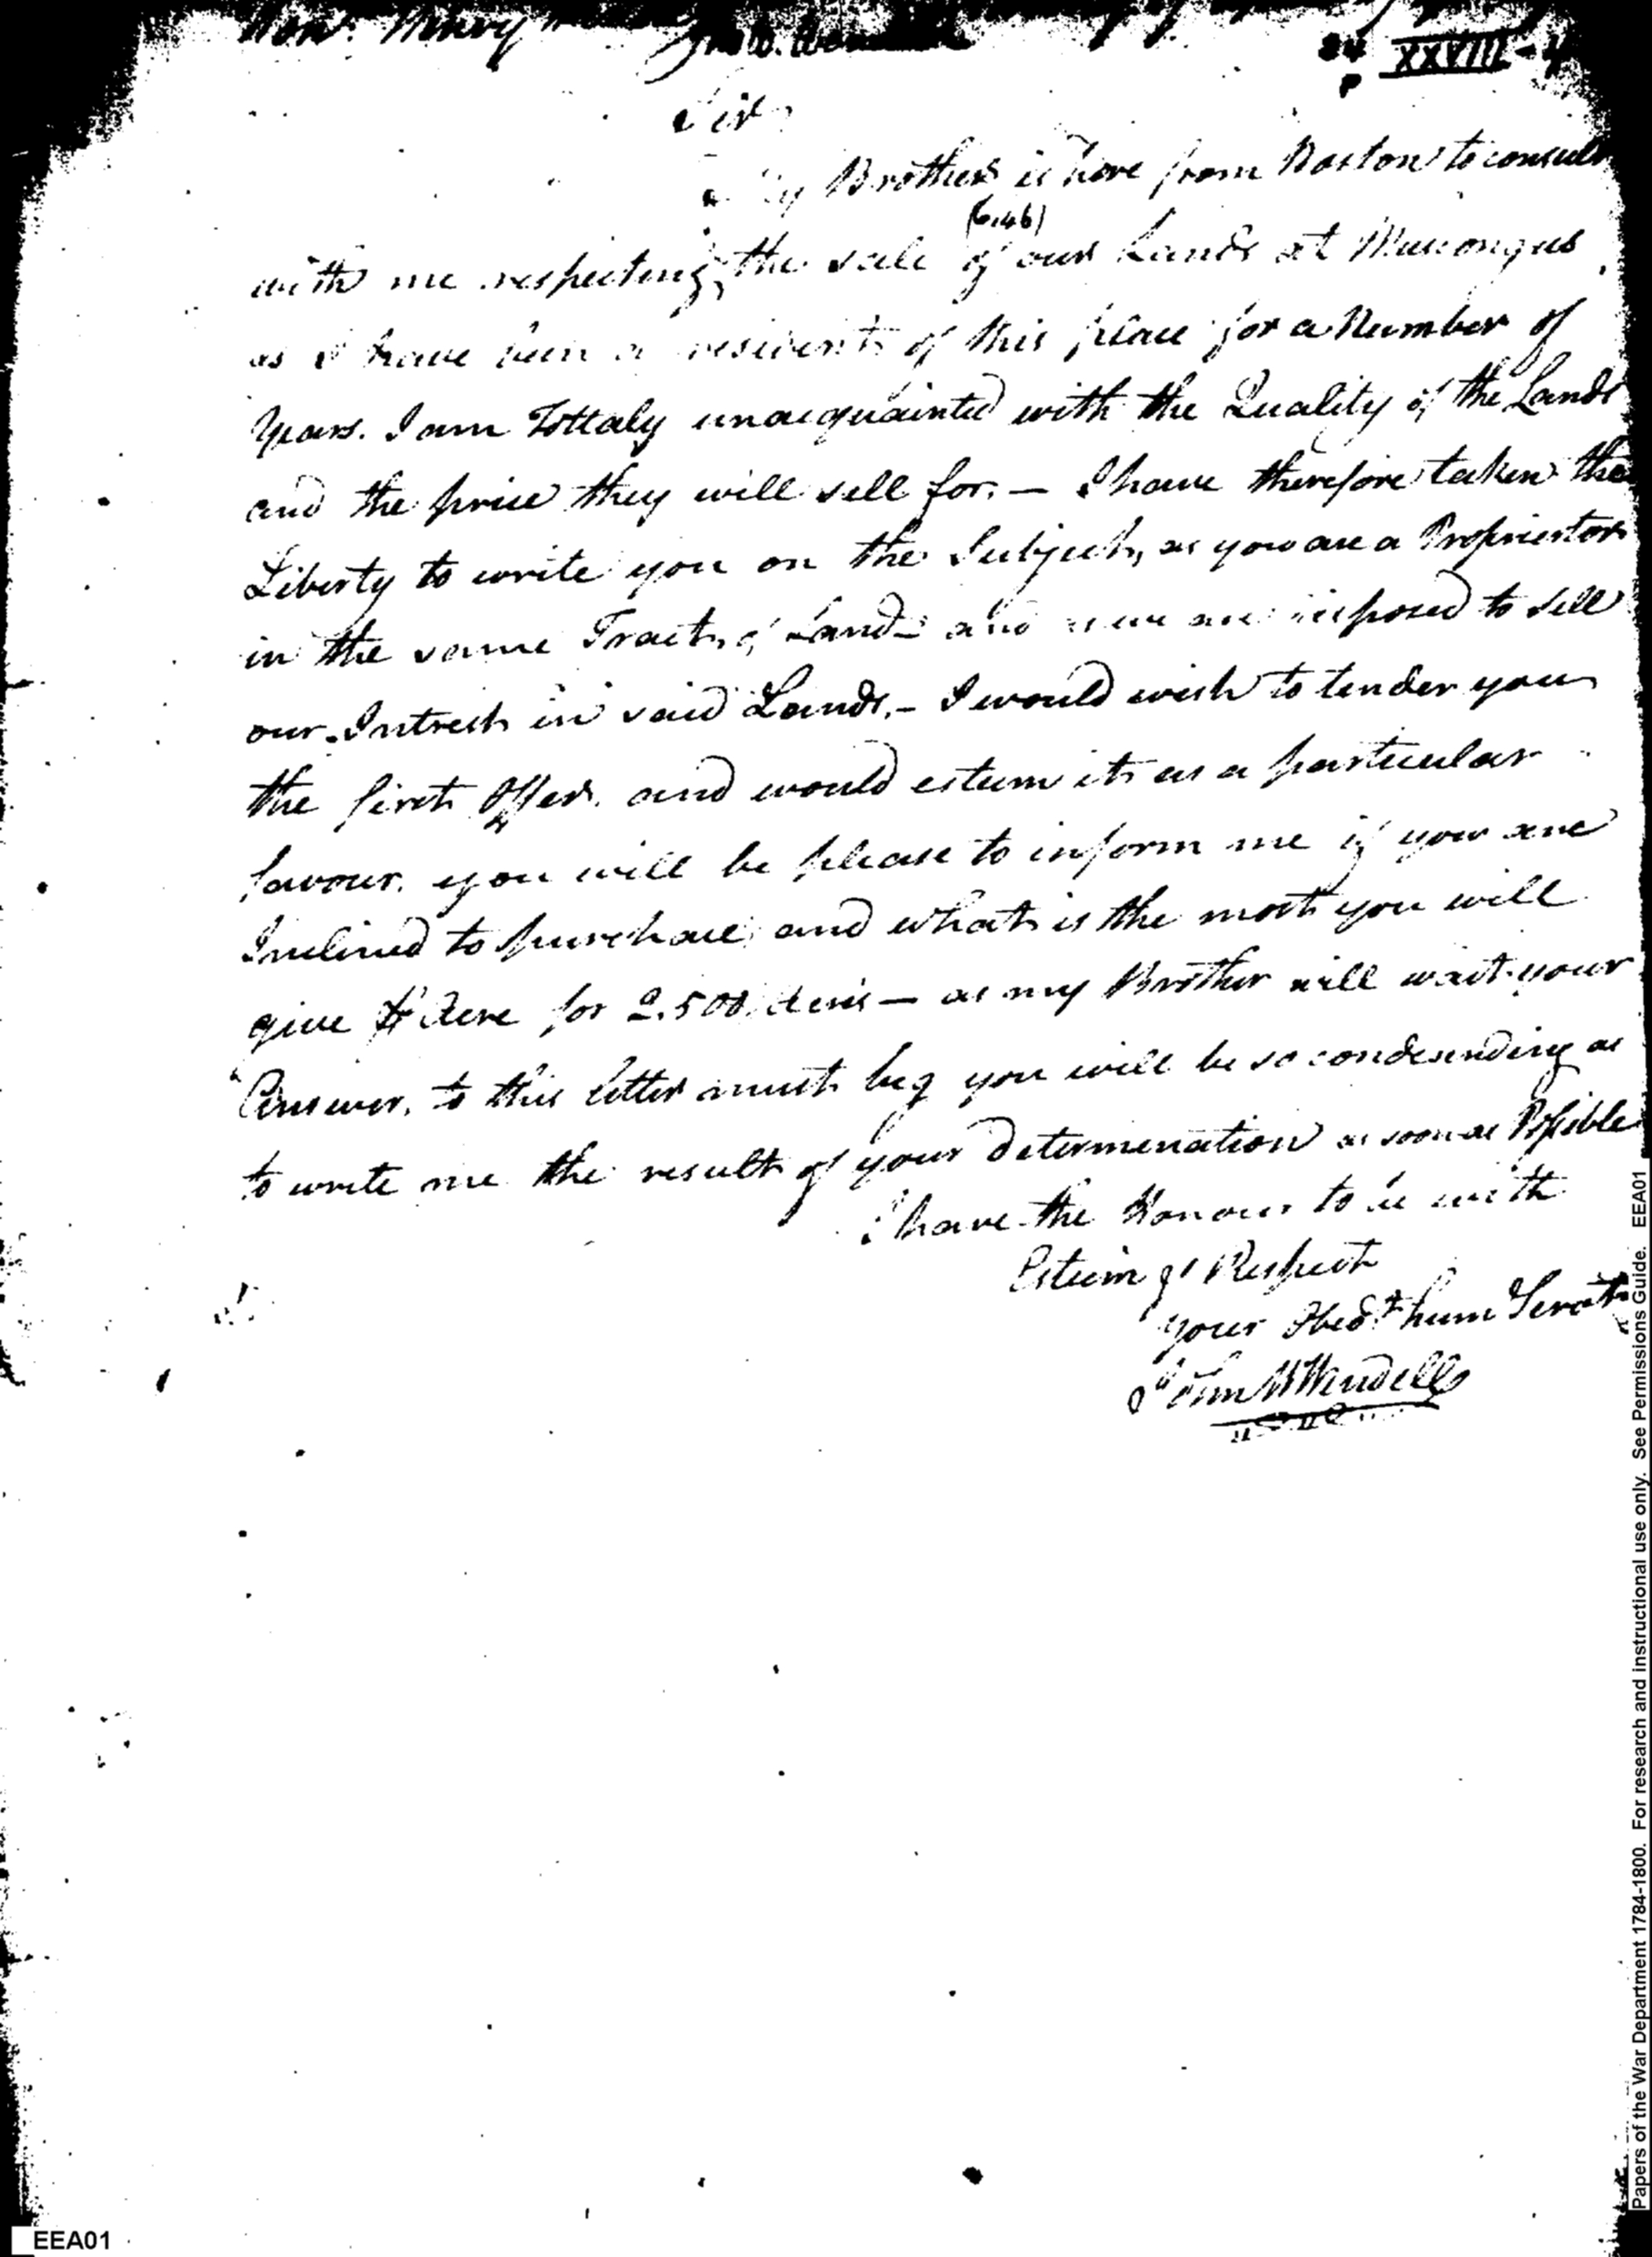 Honl. Henry
Jno W. Wen
84 XXVIII-4
P
Sir
My Brother is here from Boston to consult
(6.46)
with me respecting, the sale of our Lands at Muscongus
as I have been a resident of this place for a Number of
Years. I am Tottaly unacquainted with the Quality of the Lands
and the price they will sell for. — I have therefore taken the
Liberty to write you on the Subject, as you are a Proprietor
in the same Tract of Land and as we are disposed to sell
our Intrest in said Lands. - I would wish to tender you
the first Offer. and would esteem it as a particular
favour. you will be please to inform me if you are
Inclined to purchase, and what is the most you will
give ⅌ Acre for 2.500 Acres — as my Brother will wait your
Answer, to this letter must beg you will be so condesending as
to write me the result of your determenation as soon as Possible
I have the Honour to be with
Esteem & Respect
your Obedt. hum Servt
John W Wendell
EEA01
Papers of the War Department 1784-1800. For research and instructional use only. See Permissions Guide. EEA01